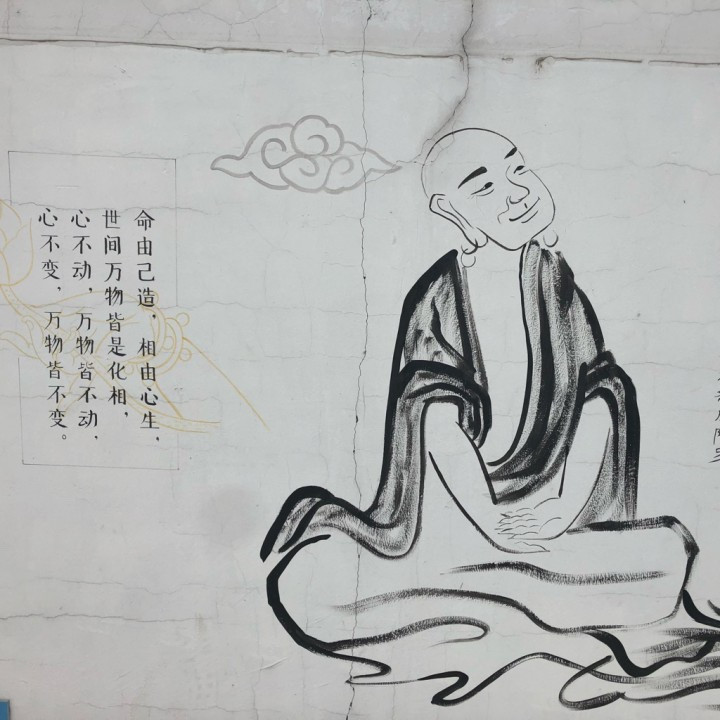 命由己造，相由心生，
世间万物皆是化相，
心不动，万物皆不动，
心不变，万物皆不变。